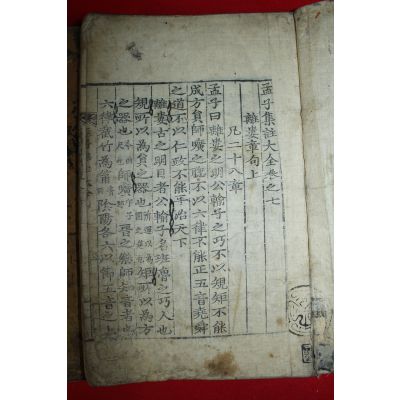 孟子集註大全卷之七
離婁章句上
凡二十八章
孟子曰離婁之明公輸子之巧不以規矩不能
成方員師曠之聰不以六律不能正五音堯舜
之道不以仁政不能平治天下
離婁古之明目者公輸子名班魯之巧人也
規所以為員之器也矩所以為方
之器也師曠晉之樂師知音者也
六律截竹為筩陰陽各六以節五音之上